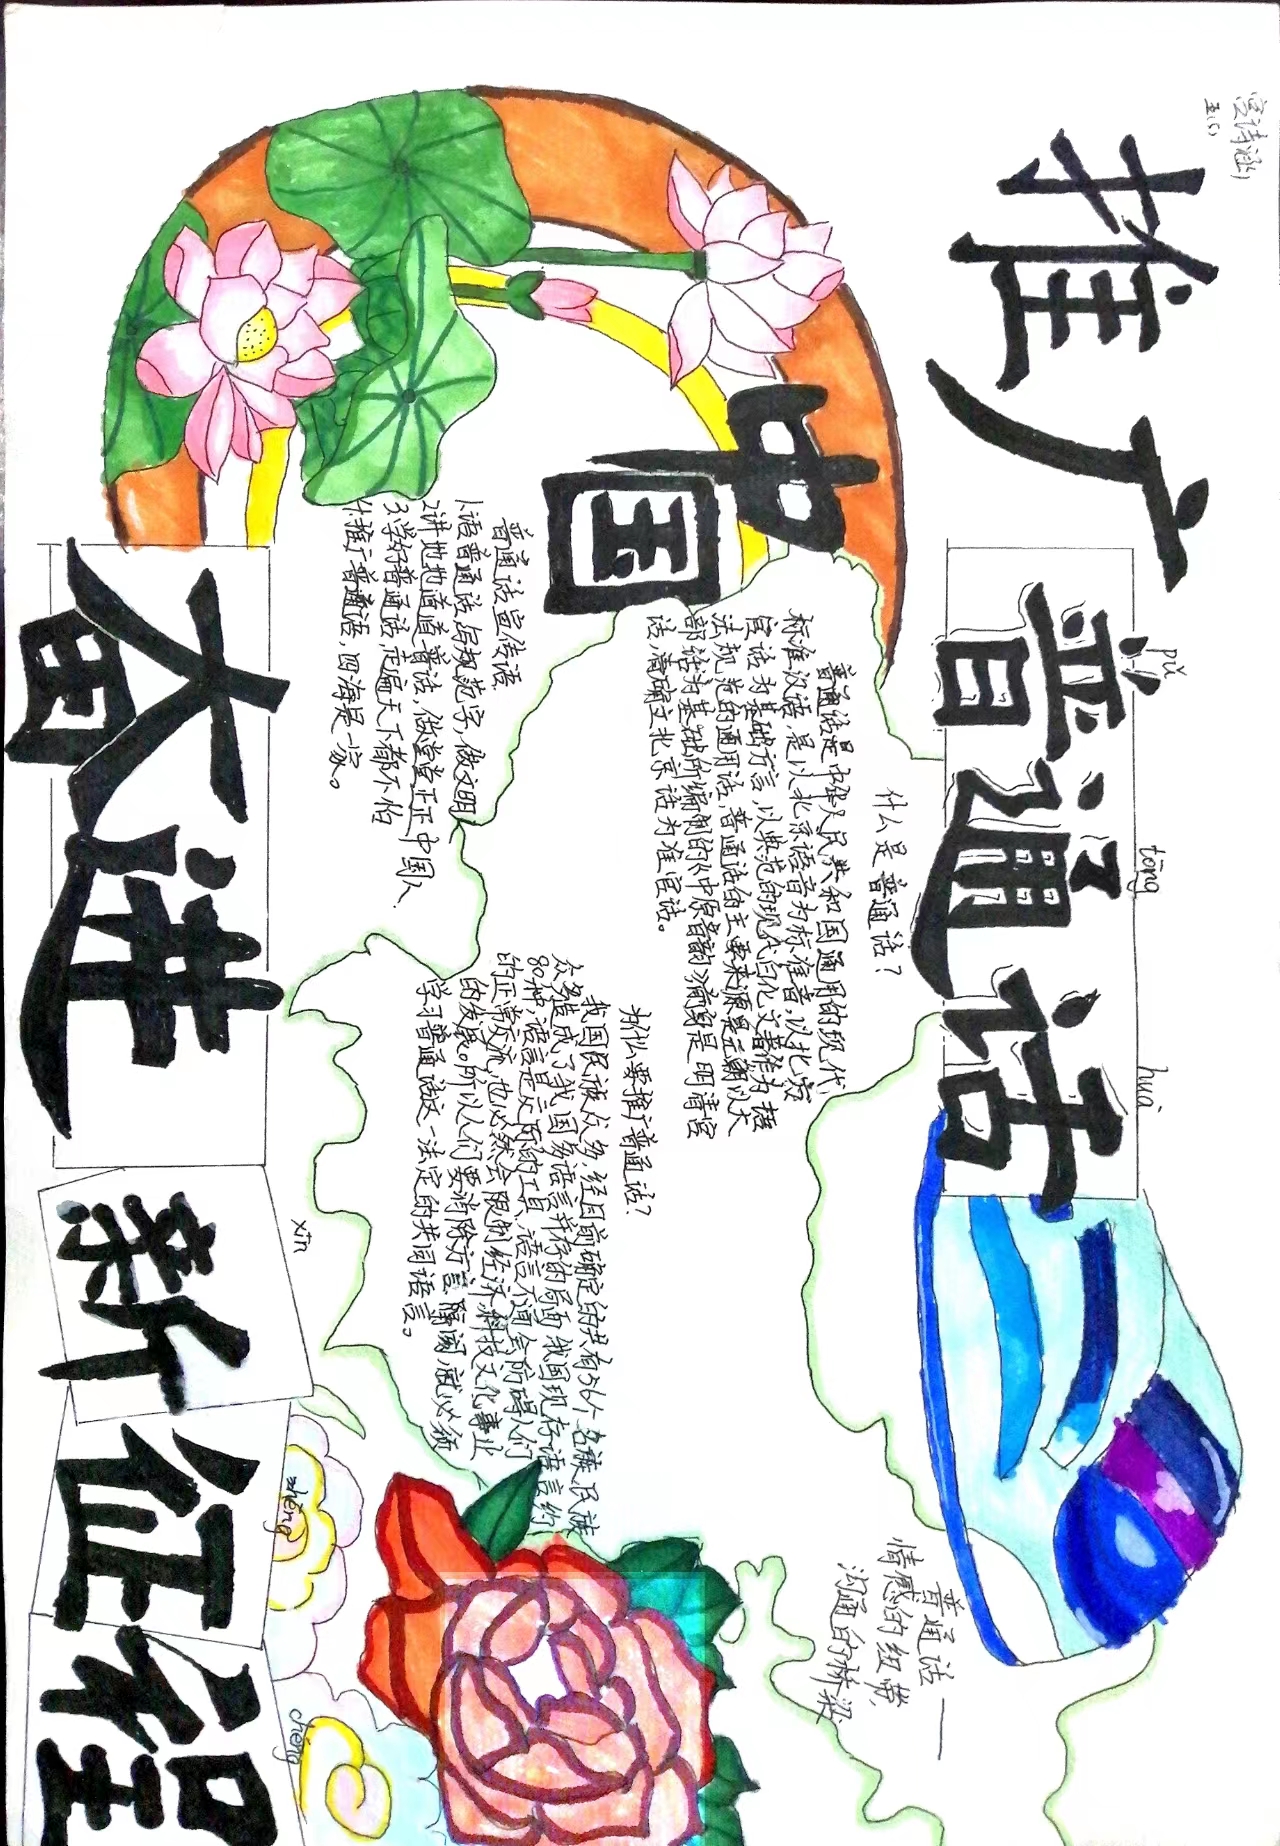 推广
普通话
pǔ
tōng
huà
中国
奋进
新征程
xīn
zhēng
chéng
五(5)
什么是普通话?
普通话是中华人民共和国通用的现代
标准汉语,是以北京语音为标准音,以北方
官话为基础方言,以典范的现代白化文著作为语
法规范的通用语,普通话的主要来源是元朝以大
部话为基础所编制的《中原音韵》
是明清官
话,清确立北京话为准官话。
普通话宣传语
1.语普通话,写规范字,做文明
2.讲地地道道普话,做堂堂正正中国人.
3.学好普通话,走遍天下都不怕
4.推广普通话,四海是一家。
为什么要推广普通话?
我国民族众多,经目前确定的共有56个名族,民族
众多造成了我国多语言并存的局面,我国现存语言约
80种,语言是交际的工具、语言不通会防碍人们
的正常交流,也必然会限制经济、科技文化事业
的发展。所以人们要消除方言隔阂,就必须
学习普通话这一法定的共同语言。
普通话——
情感的纽带,
沟通的桥梁